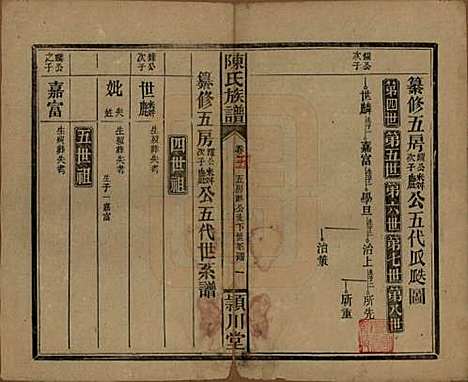 纂修五房躍公次子來祥世麟公五代瓜瓞圖
第四世 第五世 第六世 第七世 第八世
世麟 嘉富 學旦 治上 所先
所重
治業
陳氏族譜
五房麟公先下世系譜 一
穎川堂
纂修五房躍公次子來祥世麟公五代世系譜
四世祖
躍公次子
世麟 生歿葬失考
妣 失姓 生歿葬失考
生子一嘉富
五世祖
麟公之子
嘉富 生歿葬失考